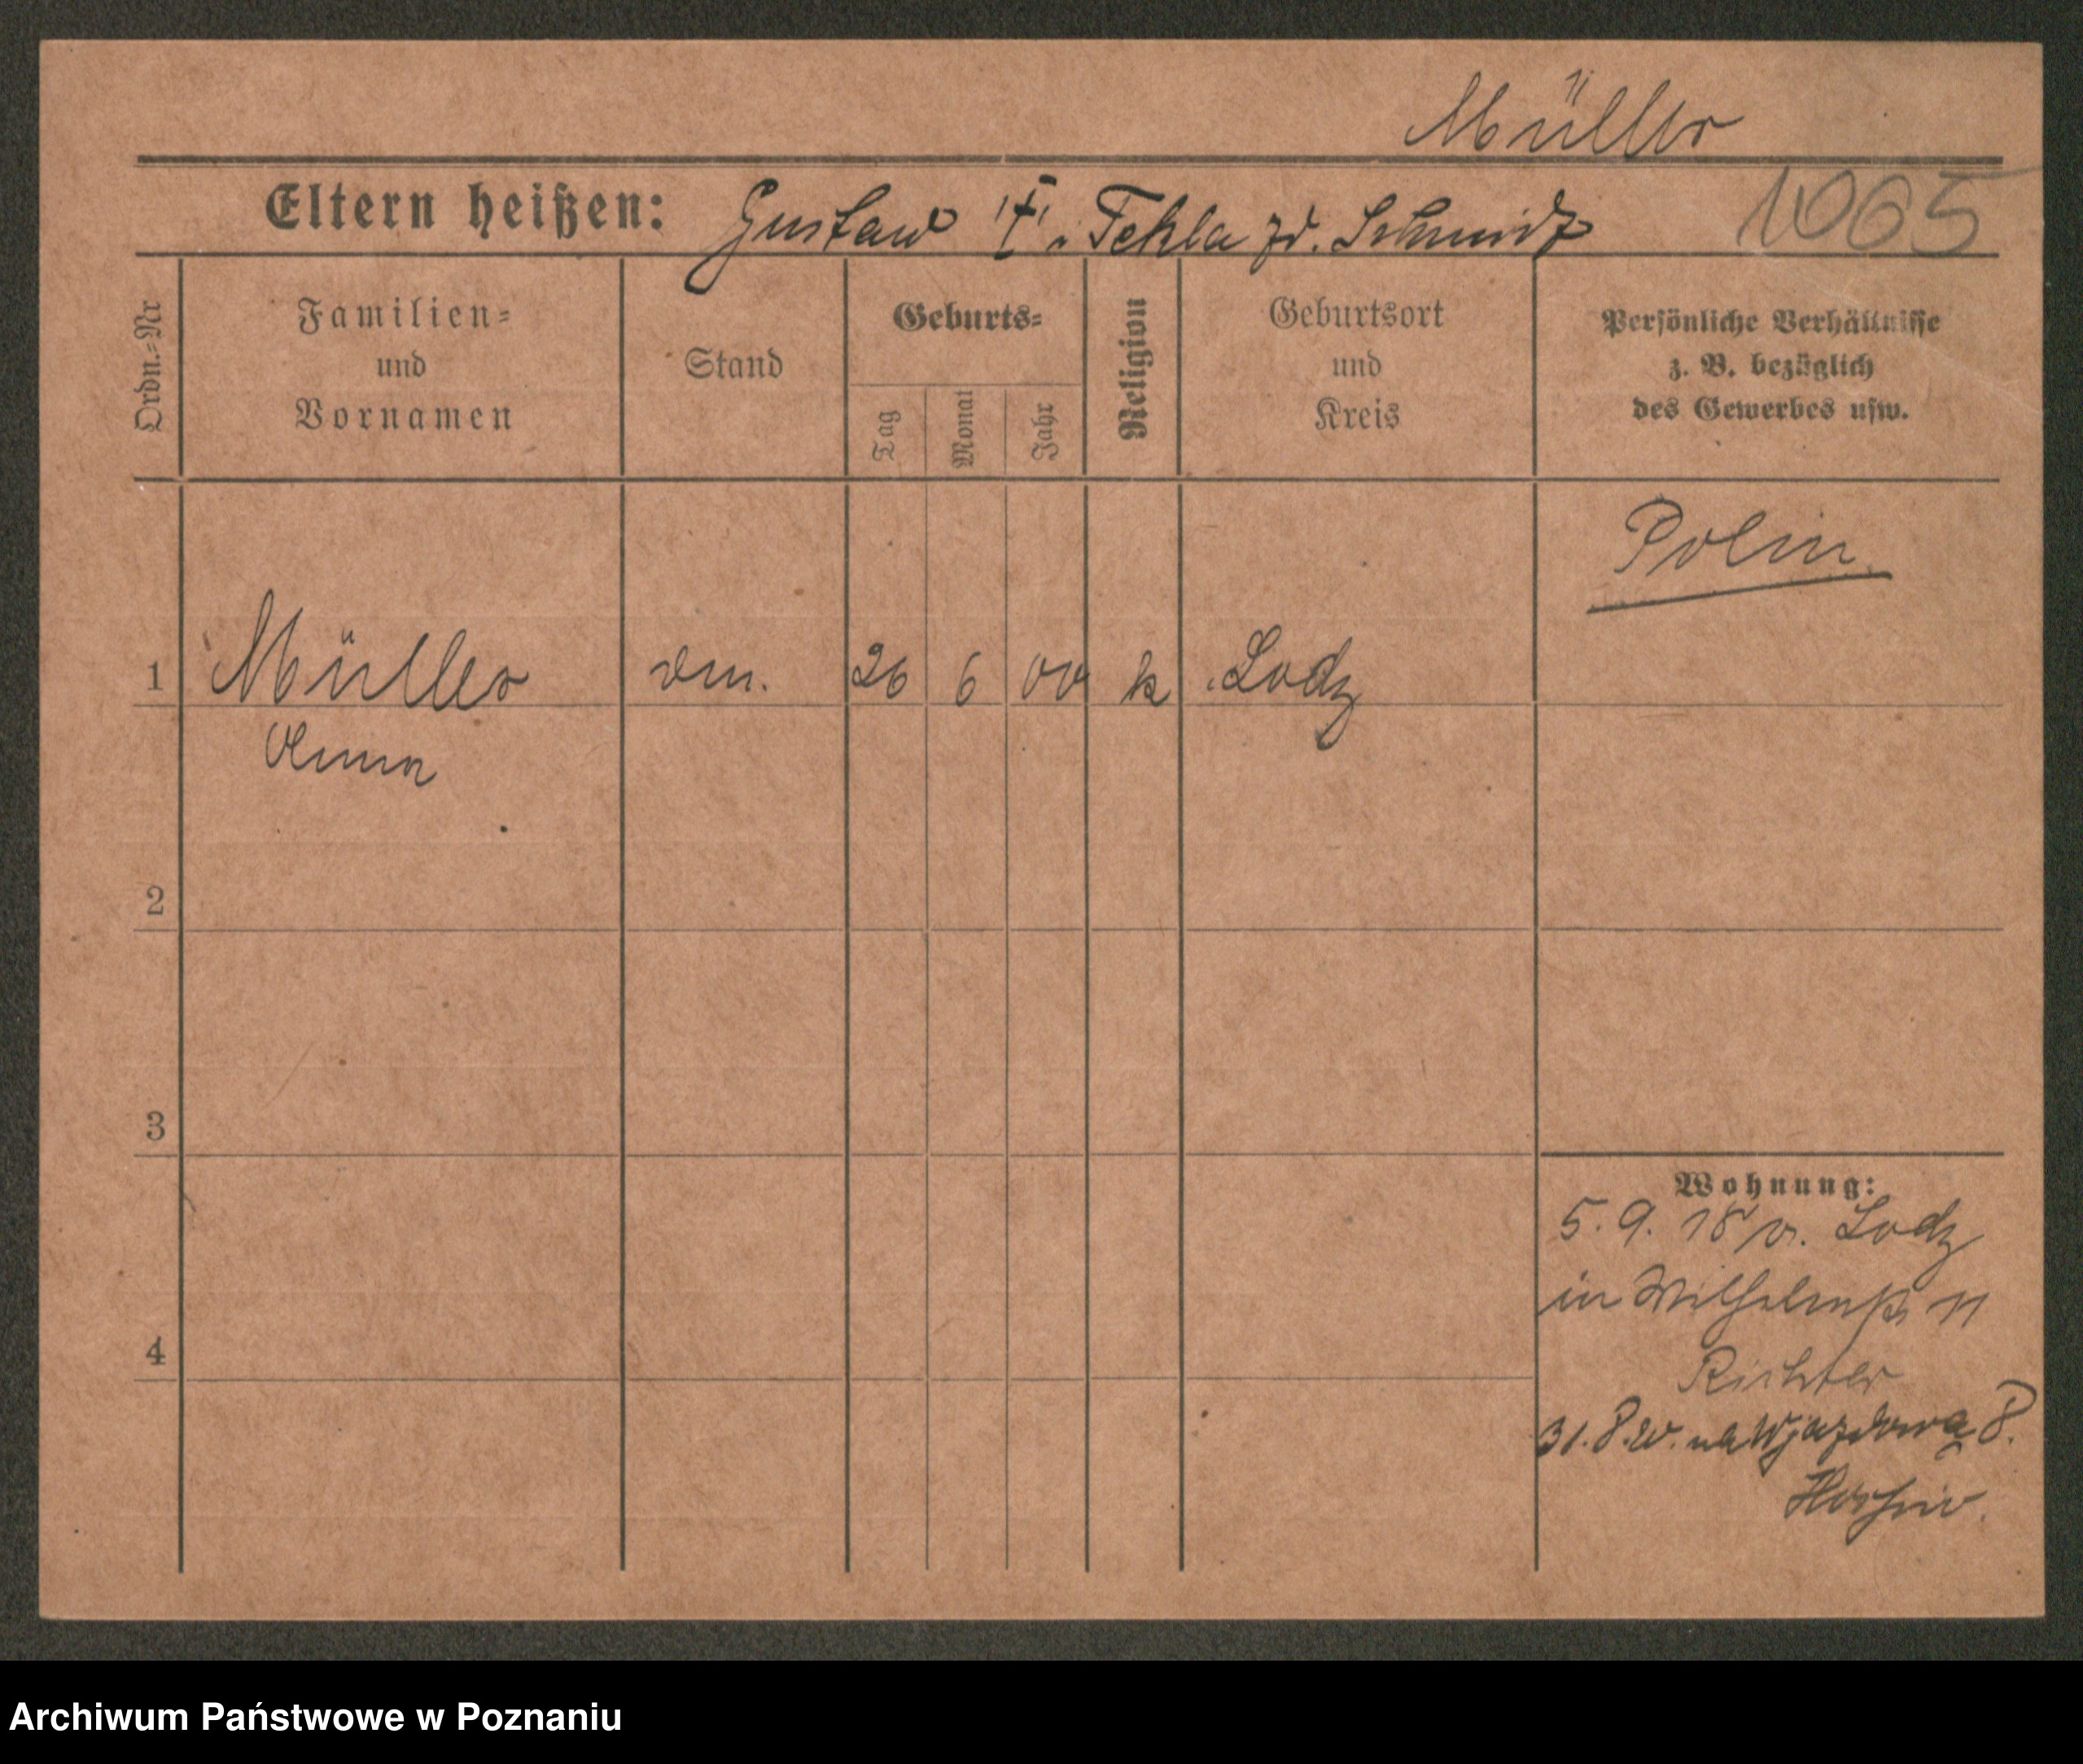 Müller
Eltern heißen: Gustaw † i Tekla zd. Schmidt
1065
Ordn.-Nr
Familien-
und
Vornamen
Stand
Geburts-
Tag
Monat
Jahr
Religion
Geburtsort
und
Kreis
Persönliche Verhältnisse
z. B. bezüglich
des Gewerbes usw.
Polin
1 Müller 26 6 00 k Lodz
Anna
2
3
4
Wohnung:
5. 9. 18 v. Lodz
in Wilhelmstr 11
Richter
31. 8. 20. na Wjazdową 8.